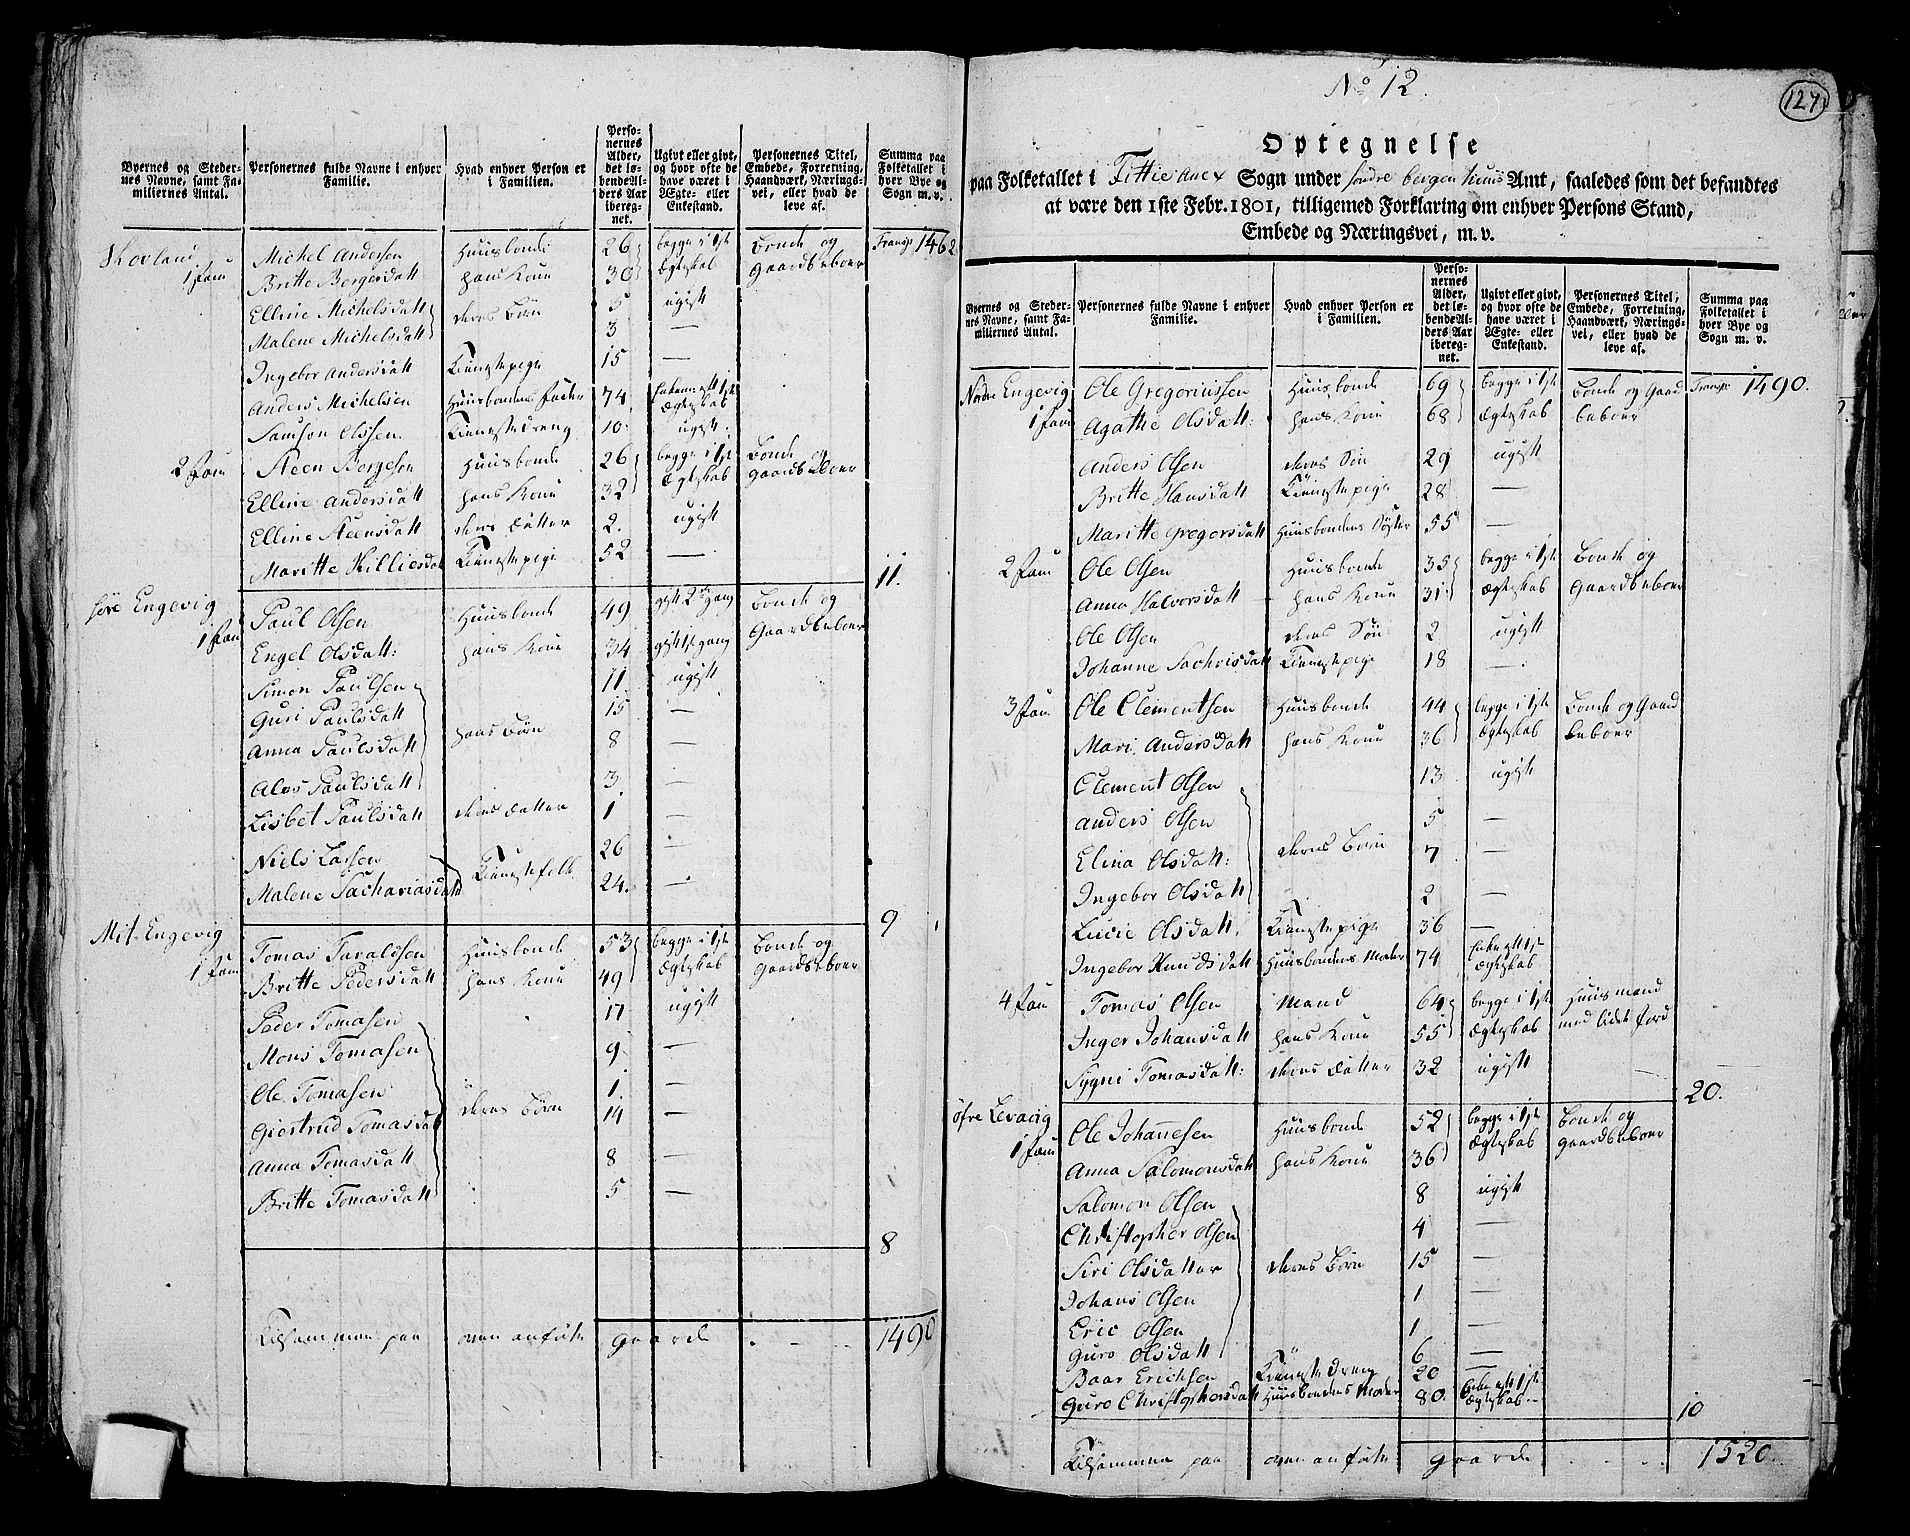 Byernes og Steder-
nes Navne, samt Fa-
miliernes Antal.
Personernes fulde Navne i enhver
Familie.
Hvad enhver Person er
i Familien.
Perso-
nernes
Alder,
det lø-
bende Al-
ders Aar
iberegnet.
Ugivt eller givt,
og hvor ofte de
have været i
Ægte- eller
Enkestand.
Personernes Titel,
Embede, Forretning,
Haandværk, Nærings-
vei, eller hvad de
leve af.
Summa paa
Folketallet i
hver Bye og
Sogn m. v.
Hovland Michel Andersen Huusbonde 26 begge i 1ste Bonde og Transp 1462
1 Fam Britte Borgesdatt hans Kone 30 Ægteskab Gaardbeboer
Elline Michelsdatt deres Børn 5 ugift
Malene Michelsdatt 3 —
Ingebor Andersdatt Tienestepige 15 —
Anders Michelsen Huusbondens Fader 74 Enkem. ett 1ste Ægteskab
Samson Olssen Tienestedreng 10 ugift
2 Fam Steen Borgeson Huusbonde 26 begge i 1ste Bonde og
Elline Andersdatt hans Kone 32 Ægteskab Gaardbeboer
Elline Steensdatt deres Datter 2 ugift
Maritte Killiesdatt Tienestepige 52 —
11.
Søre Engevig Paul Olsen Huusbonde 49 gift 2den gang Bonde og
1 Fam Engel Olsdatt: hans Kone 34 gift 1ste gang Gaardbeboer
Simon Paulsen 11 ugift
Guri Paulsdatt 15 —
Anna Paulsdatt hans Børn 8 —
Alas Paulsdatt 3 —
Lisbet Paulsdatt deres Datter 1 —
Niels Larsen Tienestefolk 26
Malene Sachariasdatt 24. —
9
Mit-Engevig Tomas Taraldsen Huusbonde 53 begge i 1ste Bonde og
1 Fam Britte Pedersdatt hans Kone 49 Ægteskab Gaardbeboer
Peder Tomasen 17 ugift
Mons Tomasen 9 —
Ole Tomasen 1 —
Giertrud Tomasdatt deres Børn 14 —
Anna Tomasdatt 8 —
Britte Tomasdatt 5 —
8
Tilsammen paa oven anførte Gaarde 1490
No 12.
124
Optegnelse
paa Folketallet i Fittie Anex Sogn under Søndre Bergenhuus Amt, saaledes som det befandtes
at være den 1ste Febr. 1801, tilligemed Forklaring om enhver Persons Stand,
Embede og Næringsvei, m. v.
Byernes og Steder-
nes Navne, samt Fa-
miliernes Antal.
Personernes fulde Navne i enhver
Familie.
Hvad enhver Person er
i Familien.
Perso-
nernes
Alder,
det lø-
bende Al-
ders Aar
ibereg-
net.
Ugivt eller givt,
og hvor ofte de
have været i
Ægte- eller
Enkestand.
Personernes Titel,
Embede, Forretning,
Haandværk, Nærings-
vei, eller hvad de
leve af.
Summa paa
Folketallet i
hver Bye og
Sogn m. v.
Nordre Engevig Ole Gregoriussen Huusbonde 69 begge i 1ste Bonde og Gaard Transp 1490.
1 Fam Agathe Olsdatt: hans Kone 68 Ægteskab beboer
Anders Olsen deres Søn 29 ugift
Britte Hansdatt Tienestepige 28 —
Maritte Gregorsdatt Huusbondens Søster 55 —
2 Fam Ole Olsen Huusbonde 35 begge i 1ste Bonde og
Anna Halvorsdatt hans Kone 31 Ægteskab Gaardbeboer
Ole Olsen deres Søn 2 ugift
Johanne Sachrisdatt Tienestepige 18 —
3 Fam Ole Clementsen Huusbonde 44 begge i 1ste Bonde og Gaard
Mari Andersdatt hans Kone 36 Ægteskab beboer
Clement Olsen 13 ugift
Anders Olsen 5 —
Elina Olsdatt: deres Børn 7 —
Ingebor Olsdatt 2 —
Lucie Olsdatt. Tienestepige 36 —
Ingebor Knudsdatt Huusbondens Moder 74 Enke ett 1ste Ægteskab
4 Fam Tomas Olsen Mand 64 begge i 1ste Huusmand
Inger Johansdatt hans Kone 55 Ægteskab med lidet Jord
Sygni Tomasdatt: deres Datter 32 ugift
20.
Øfre Levaag Ole Johannesen Huusbonde 52 begge i 1ste Bonde og
1 Fam Anna Salomonsdatt hans Kone 36 Ægteskab Gaardbeboer
Salomon Olsen 8 ugift
Christopher Olsen 4 —
Siri Olsdatter deres Børn 15 —
Johans Olsen 1 —
Eric Olsen 1 —
Guro Olsdatt 6 —
Baar Erichsen Tienestedreng 20 —
Guro Christophersdatt Huusbondens Moder 80. Enke ett 1ste Ægteskab
10
Tilsammen paa oven anførte Gaarde 1520.